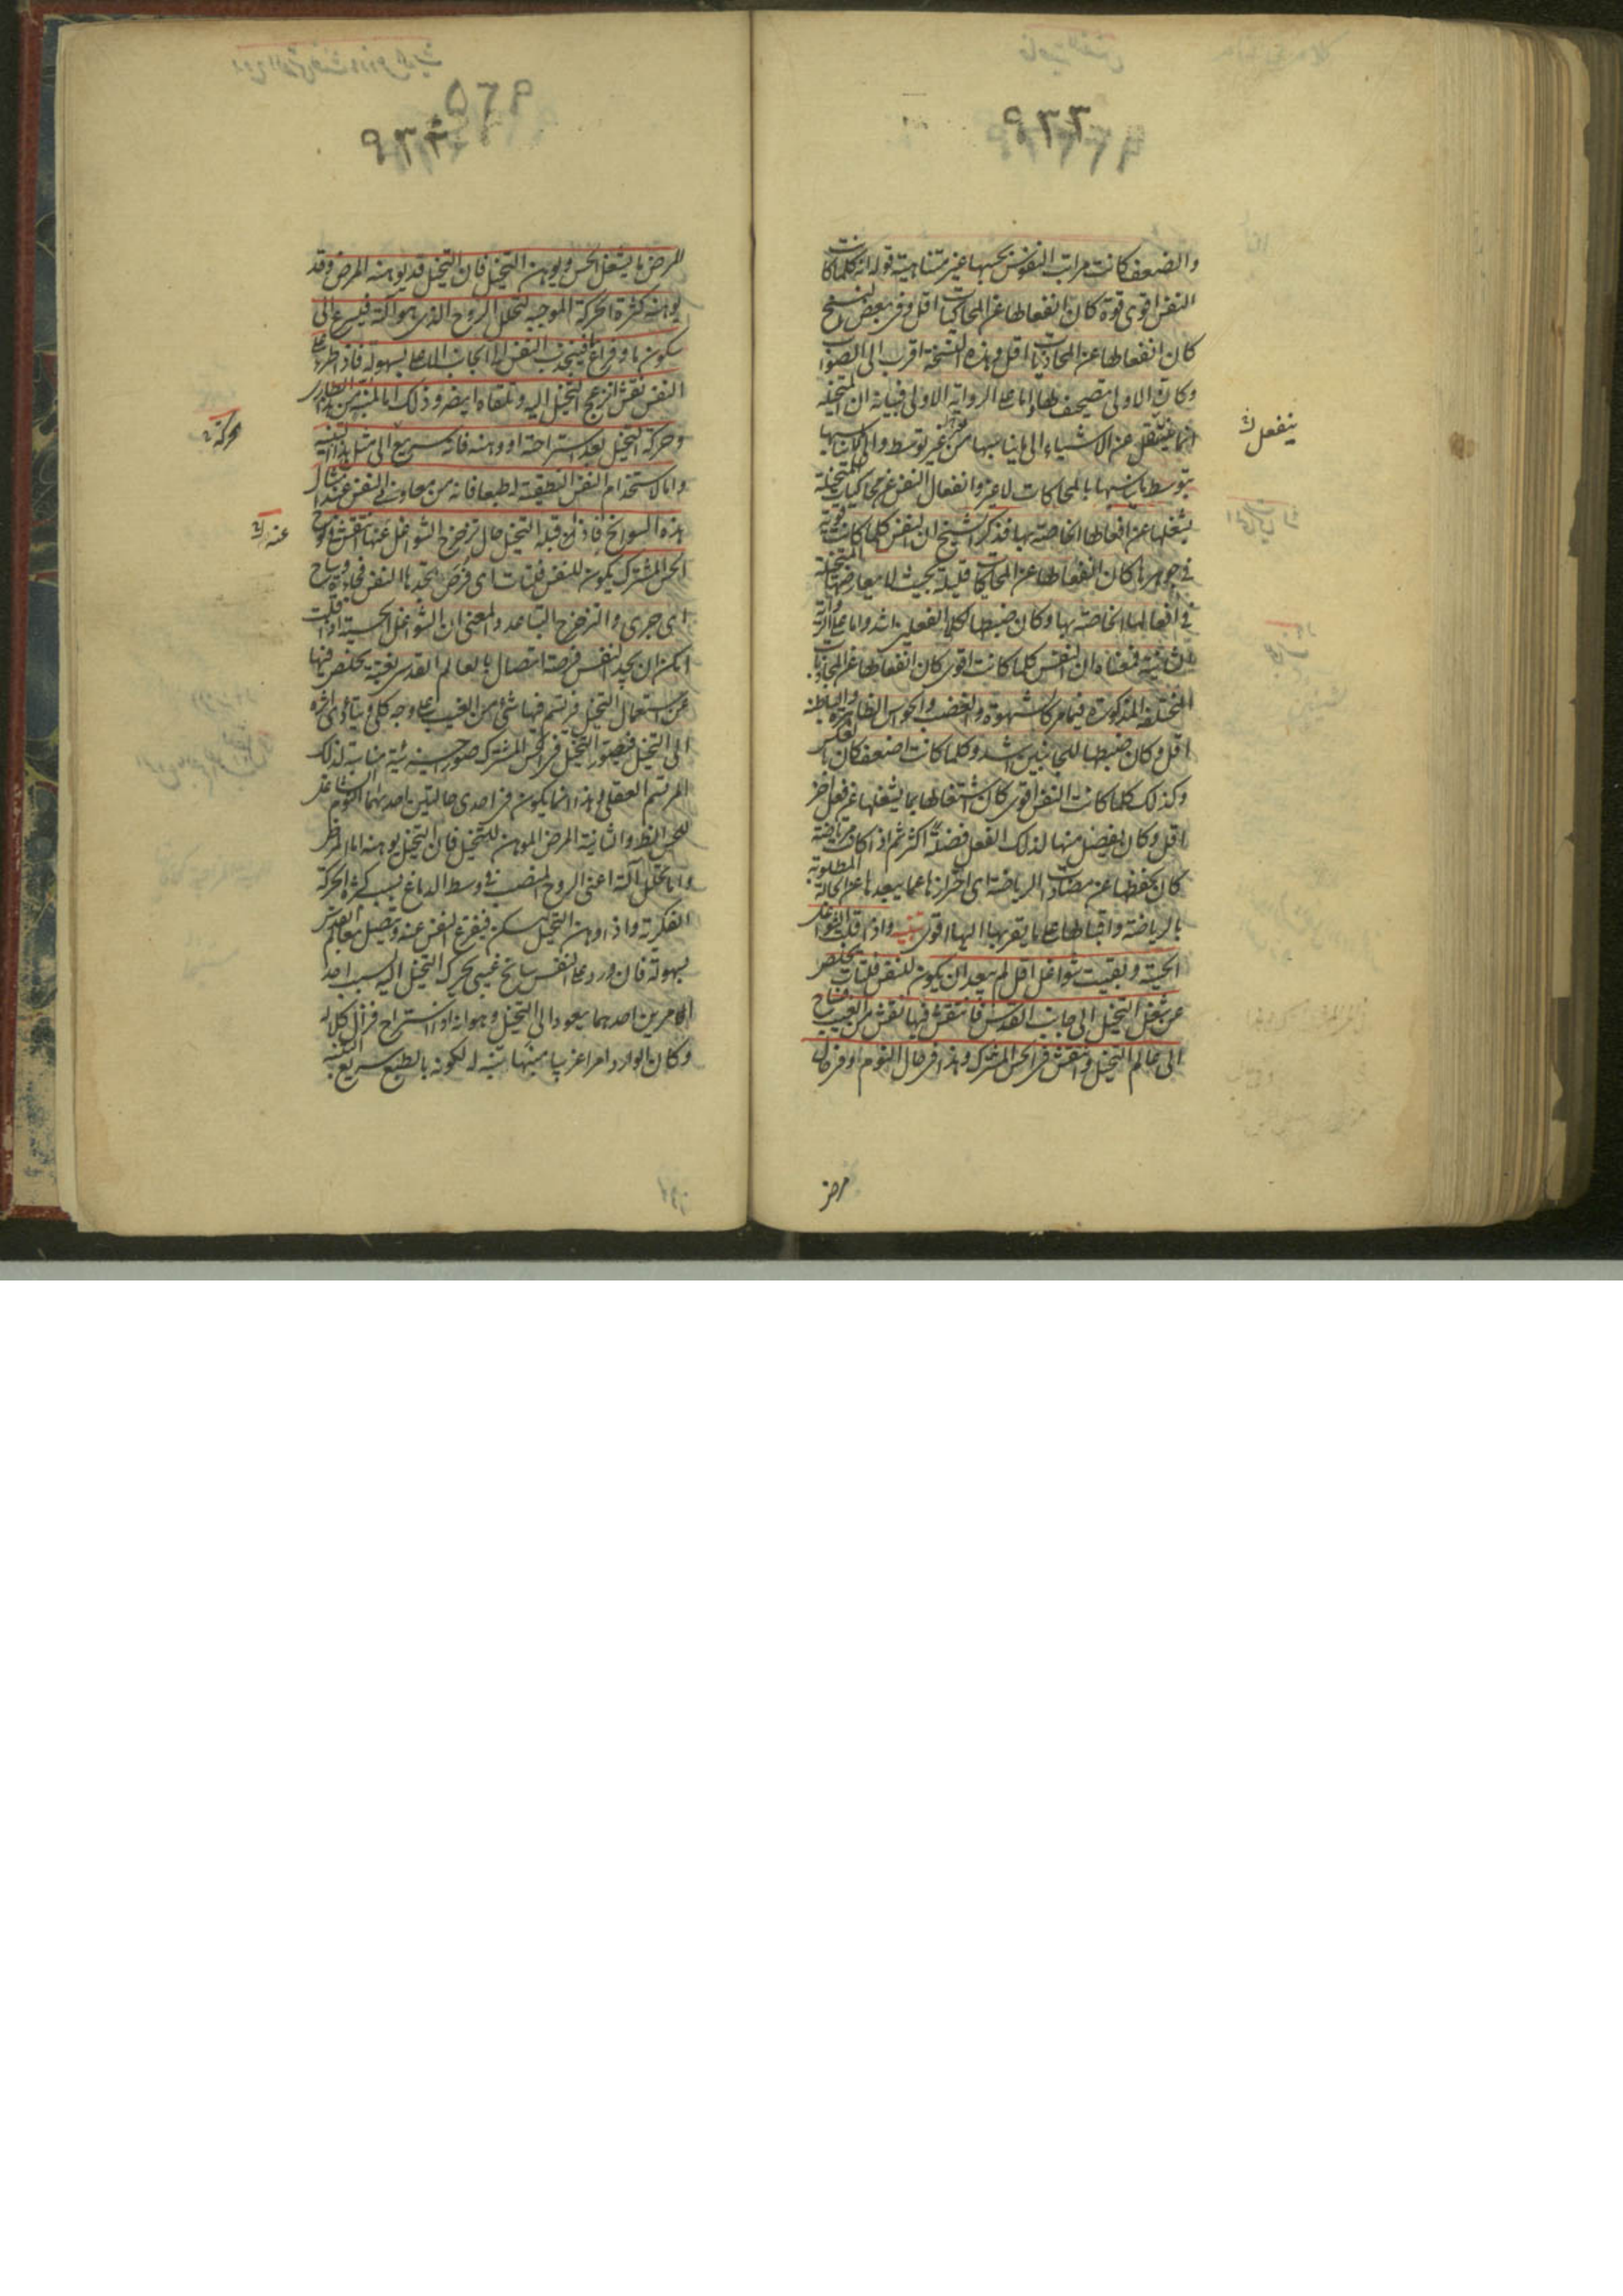 والضعف كانت مراتب النفوس بحسبها غير متناهية قوله انه كلما كانت
النفس اقوى قوة كان انفعالها عن المحاكيات اقل وفى بعض النسخ
كان انفعالها عن المجاذبات اقل وهذه النسخة اقرب الى الصواب
وكان الاولى تصحيف لها واما على الرواية الاولى فبيانه ان المتخيلة
انما ينتقل عن الاشياء الى ما يناسبها من غير توسط والى ما لا يناسبها
بتوسط ما يناسبها بالمحاكات لا غير وانفعال النفس عن محاكيات المتخيلة
يشغلها عن افعالها الخاصة بها فذكر الشيخ ان النفس كلما كانت قوية
فى جوهرها كان انفعالها عن المحاكيات قليلة بحيث لا يعارضها المتخيلة
فى افعالها الخاصة بها وكان ضبطها لكلا الفعلين اشد واما على الرواية
الثانية فمعناه ان النفس كلما كانت اقوى كان انفعالها عن المجاذبات
المختلفة المذكورة فيما مر كالشهوة والغضب والحواس الظاهرة والباطنة
اقل وكان ضبطها للجانبين اشد وكلما كانت اضعف كان بالعكس
وكذلك كلما كانت النفس اقوى كان اشتغالها بما يشغلها عن فعل اخر
اقل وكان يفضل منها لذلك الفعل فضلة اكثر ثم اذا كانت مرتاضة
كان تحفظها عن مضادات الرياضة اى احترازها عما يبعدها عن الحالة المطلوبة
بالرياضة واقبالها على ما يقربها اليها اقوى تنبيه واذا قلت الشواغل
الحسية وبقيت شواغل اقل لم يبعد ان يكون للنفس فلتات يخلص
عن شغل التخيل الى جانب القدس فانتقش فيها نقش من الغيب فساح
الى عالم التخيل وانتقش فى الحس المشترك وهذا فى حال النوم او فى حال
ينفعل
مرض
المرض ما يشغل الحس ويوهن التخيل فان التخيل قد يوهنه المرض وقد
يوهنه كثرة الحركة الموجبة لتحلل الروح الذى هو آلته فيسرع الى
سكون ما وفراغ ما فينجذب النفس الى الجانب الاعلى بسهولة فاذا طرء على
النفس نقش انزعج التخيل اليه وتلقاه ايضا وذلك اما لمنبه من هذا الطارى
وحركة التخيل بعد استراحته او وهنه فانه سريع الى مثل هذا التنبه
واما لاستخدام النفس النطقية له طبعا فانه من معاون النفس عند امثال
هذه السوانح فاذا قبله التخيل حال تزحزح الشواغل عنها انتقش فى لوح
الحس المشترك يكون للنفس فلتات اى فرص تجدها النفس فجاءة وساح
اى جرى والتزحزح التباعد والمعنى ان الشواغل الحسية اذا قلت
امكن ان يجد النفس فرصة اتصال بالعالم القدسى بغتة يخلص فيها
عن استعمال التخيل فيرتسم فيها شئ من الغيب على وجه كلى ويتأدى اثره
الى التخيل فيصور التخيل فى الحس المشترك صور حسية مناسبة لذلك
المرتسم العقلى وهذا انما يكون فى احدى حالتين احديهما النوم الشاغل
للحس الظاهر والثانية المرض الموهن للتخيل فان التخيل يوهنه اما المرض
واما تحلل آلته اعنى الروح المنصب فى وسط الدماغ بسبب كثرة الحركة
الفكرية واذا وهن التخيل سكن فيفرغ النفس عنه ويتصل بعالم القدس
بسهولة فان ورد على النفس سانح غيبى تحرك التخيل اليه بسبب احد
الامرين احدهما يعود الى التخيل وهو انه اذا استراح فزال كلاله
وكان الوارد امرا غريبا منبها تنبه له لكونه بالطبع سريع التنبه
حركة
عنه